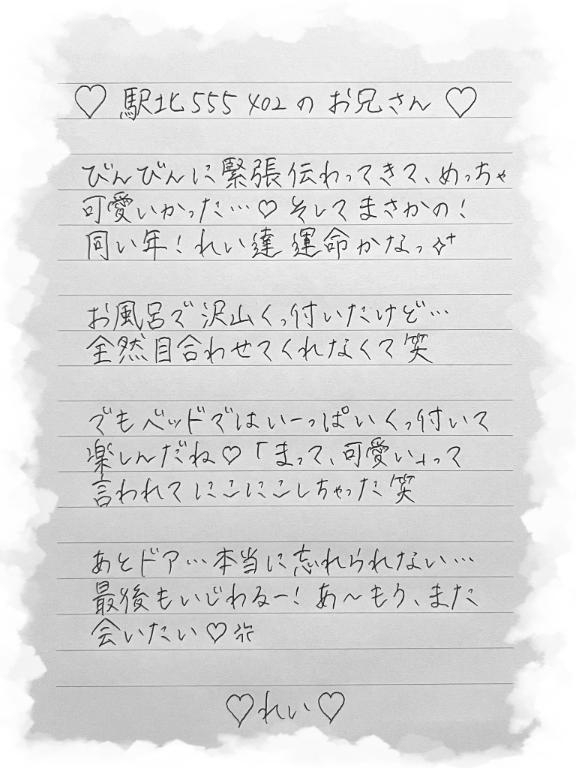 ♡ 駅北 555 402 の お兄さん ♡
びんびんに緊張伝わってきて、めっちゃ
可愛いかった…♡ そしてまさかの！
同い年！れい達 運命かなっ✧⁺
お風呂で沢山くっ付いたけど…
全然目合わせてくれなくて笑
でもベッドではいーっぱいくっ付いて
楽しんだね♡「まって、可愛い」って
言われてにこにこしちゃった笑
あとドア…本当に忘れられない…
最後もいじわるー！あ〜もう、また
会いたい♡
♡れい♡